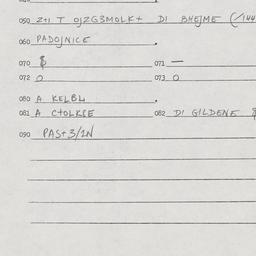 050 Z+1 T OJZG3MOLK+ DI BHEJME (/144
060 PADOJNICE
070 $ 071 —
072 0 073 0
080 A KELBL
081 A C+OLKSE 082 DI GILDENE
090 PAS+3/2N